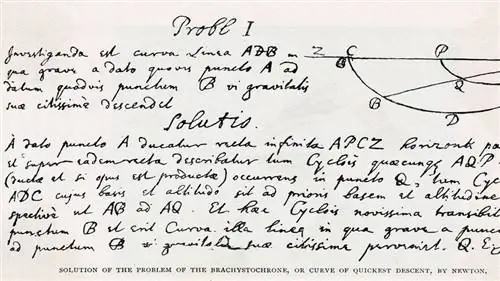 Probl I
Investiganda est curva Linea ADB in
qua grave a dato quovis puncto A ad
datum quodvis punctum B vi gravitatis
suæ citissime descendet
Z C P
B Q
B D
Solutio.
A dato puncto A ducatur recta infinita APCZ horizonti pa
et super eadem recta describatur tum Cyclois quæcunque AQP
(ductæ et si opus est productæ) occurrens in puncto Q, tum Cyc
ADC cujus basis et altitudo sit ad prioris basem et altitudine
spective ut AB ad AQ. Et hæc Cyclois novissima transibit
punctum B et erit Curva illa linea in qua grave a punc
ad punctum B vi gravitatis suæ citissime perveniet. Q. E.
SOLUTION OF THE PROBLEM OF THE BRACHYSTOCHRONE, OR CURVE OF QUICKEST DESCENT, BY NEWTON,